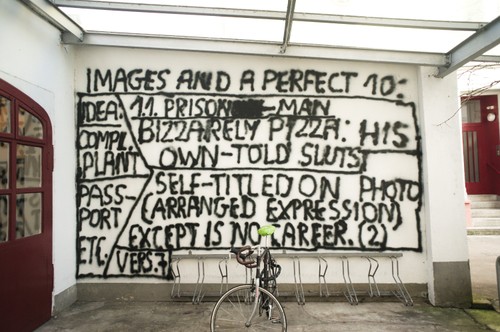 IMAGES AND A PERFECT 10:
IDEA: 11. PRISON MAN
COMPL. BIZZARELY PIZZA: HIS
PLANT OWN-TOLD SLUTS
PASS- SELF-TITLED ON PHOTO
PORT (ARRANGED EXPRESSION)
ETC. EXCEPT IS NO CAREER. (2)
VERS.7